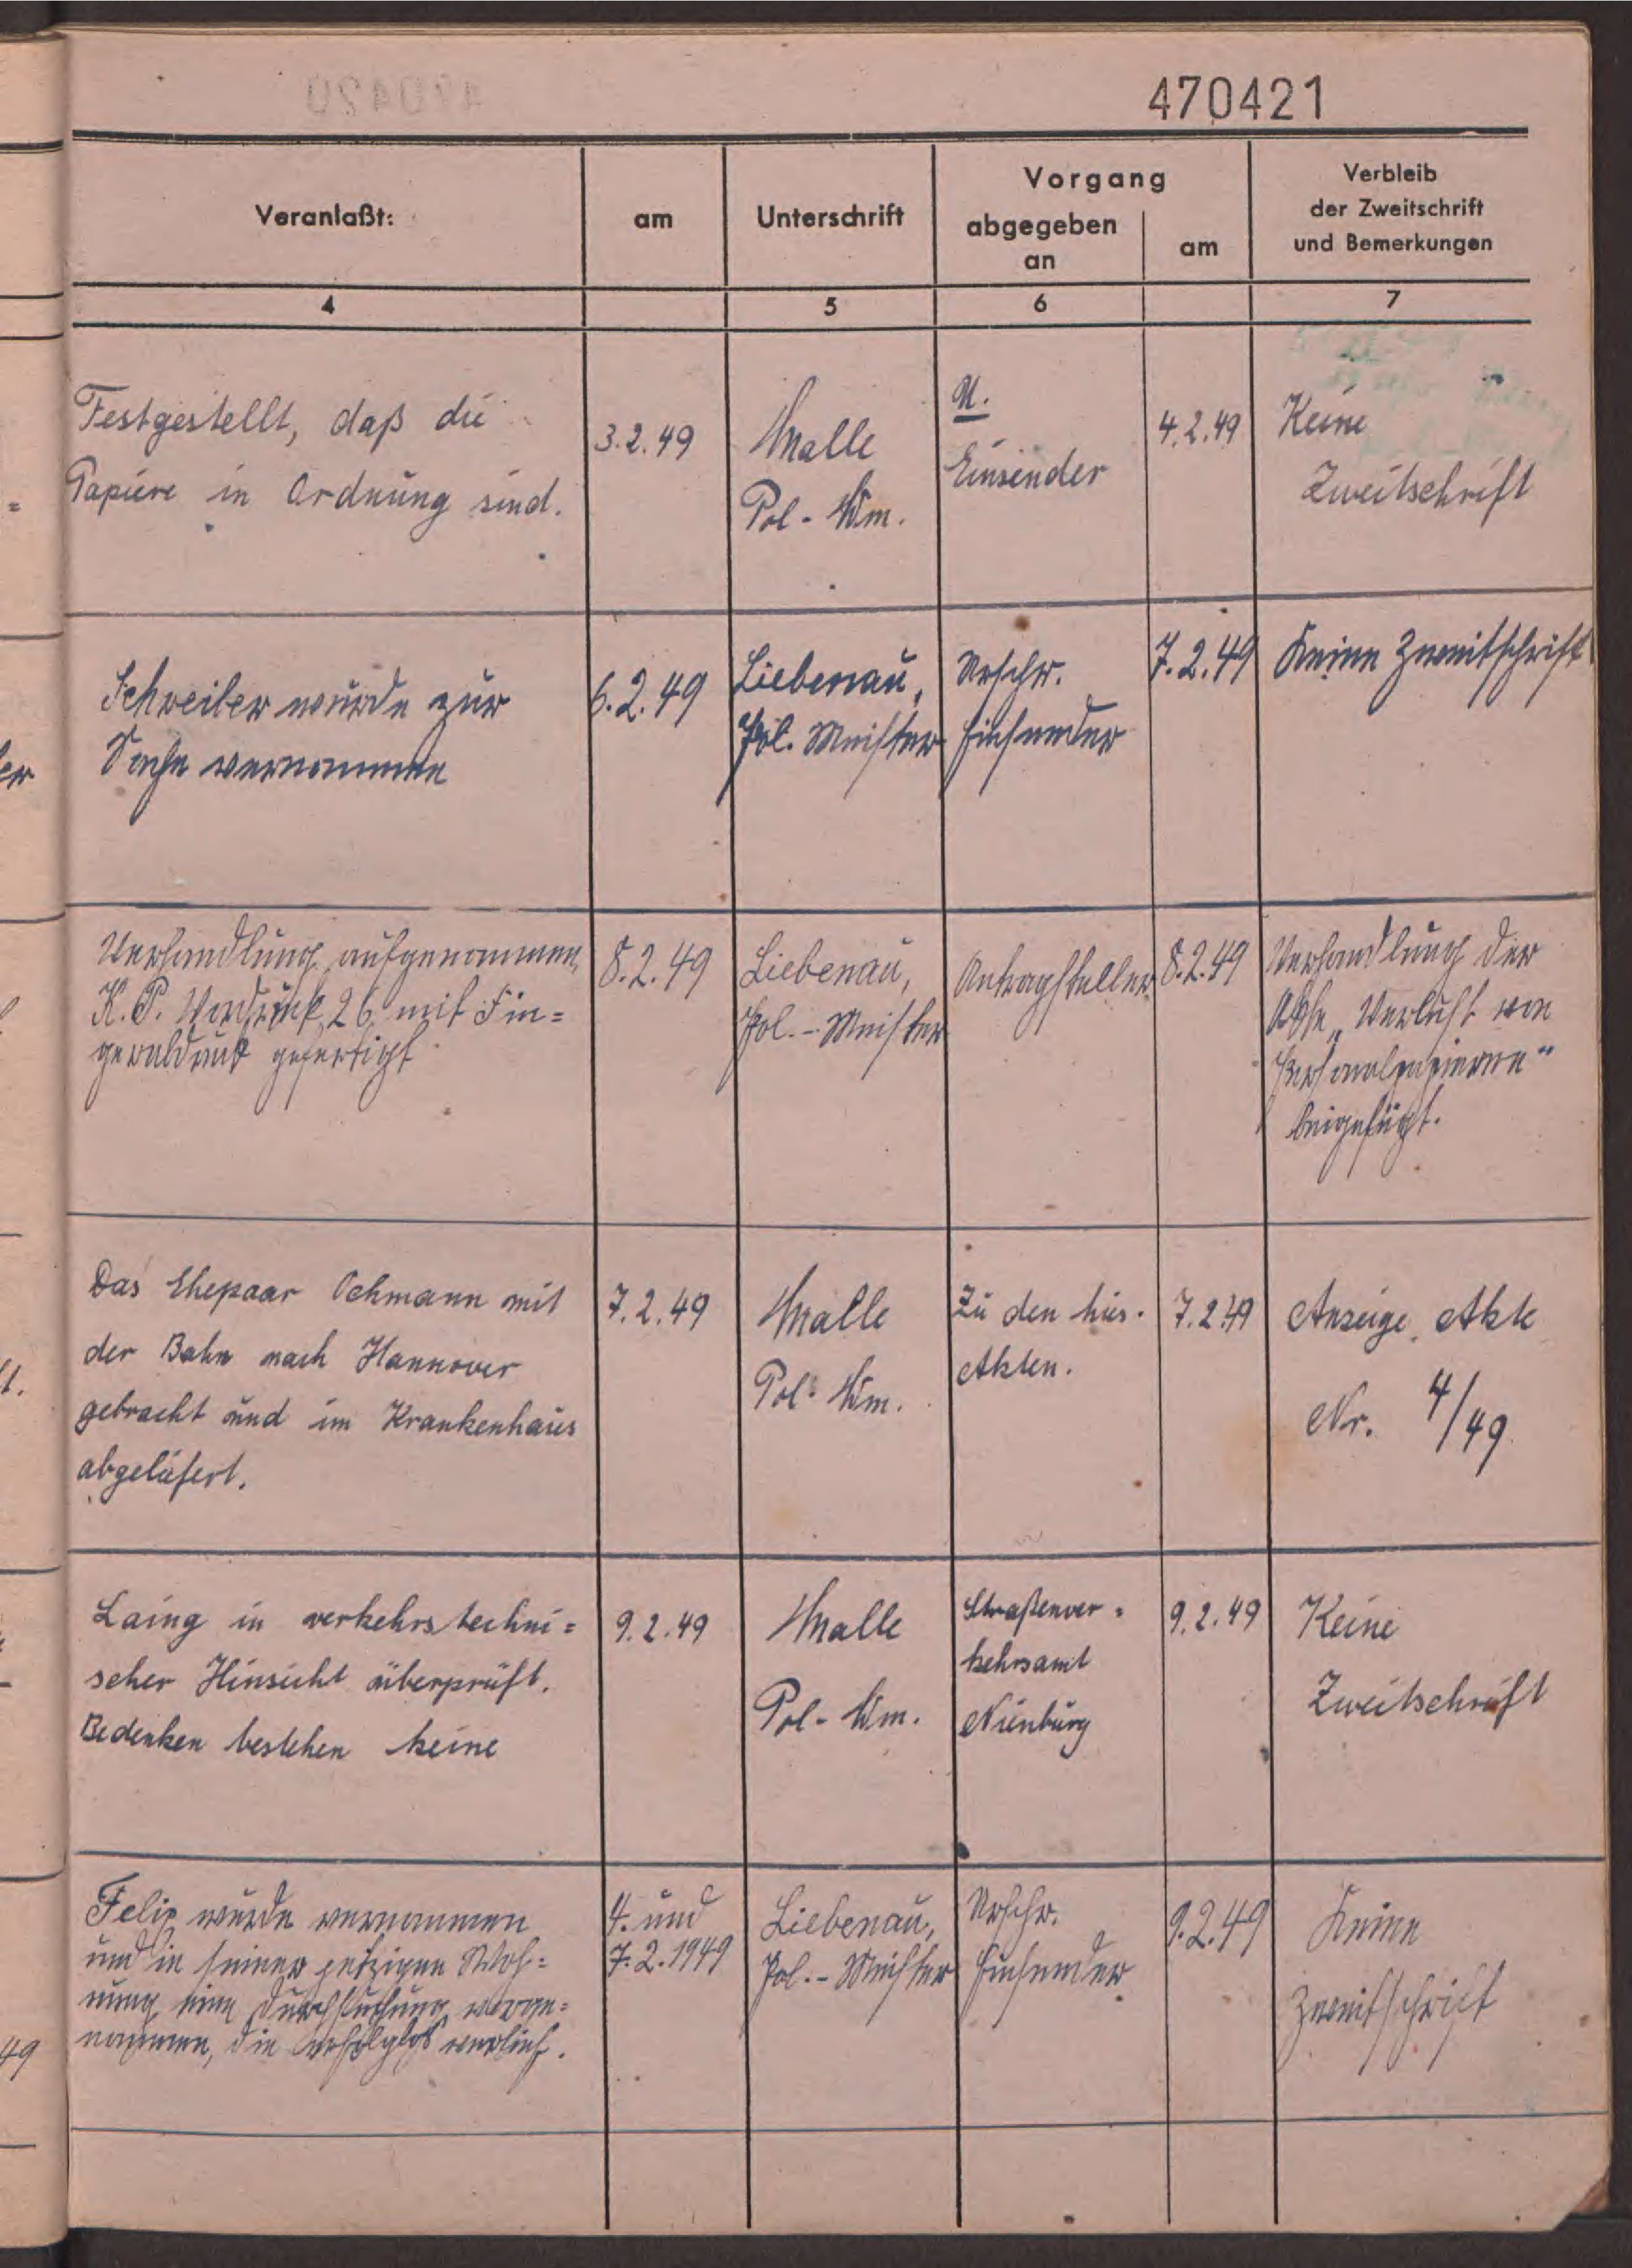 470421
Veranlaßt:
am
Unterschrift
Vorgang
abgegeben
an
am
Verbleib
der Zweitschrift
und Bemerkungen
4
5
6
7
Festgestellt, daß die
Papiere in Ordnung sind.
3.2.49
Malle
Pol-Wm.
U.
Einsender
4.2.49
Keine
Zweitschrift
Schreiber wurde zur
Sache vernommen
6.2.49
Liebenau,
Pol. Meister
Urschr.
Einsender
7.2.49
Keine Zweitschrift
Verhandlung aufgenommen,
K.P. Vordruck 26 mit Fin=
gerabdruck gefertigt
8.2.49
Liebenau,
Pol.-Meister
Antragsteller
8.2.49
Verhandlung der
Akte „Verlust von
Personalpapieren"
beigefügt.
Das Ehepaar Ochmann mit
der Bahn nach Hannover
gebracht und im Krankenhaus
abgeliefert.
7.2.49
Malle
Pol-Wm.
Zu den hies.
Akten.
7.2.49
Anzeige, Akte
Nr. 4/49
Laing in verkehrstechni=
scher Hinsicht überprüft.
Bedenken bestehen keine
9.2.49
Malle
Pol-Wm.
Straßenver=
kehrsamt
Nienburg
9.2.49
Keine
Zweitschrift
Felix wurde vernommen
und in seiner jetzigen Woh=
nung eine Durchsuchung vorge=
nommen, die erfolglos verlief.
4. und
7.2.1949
Liebenau,
Pol.-Meister
Urschr.
Einsender
9.2.49
Keine
Zweitschrift